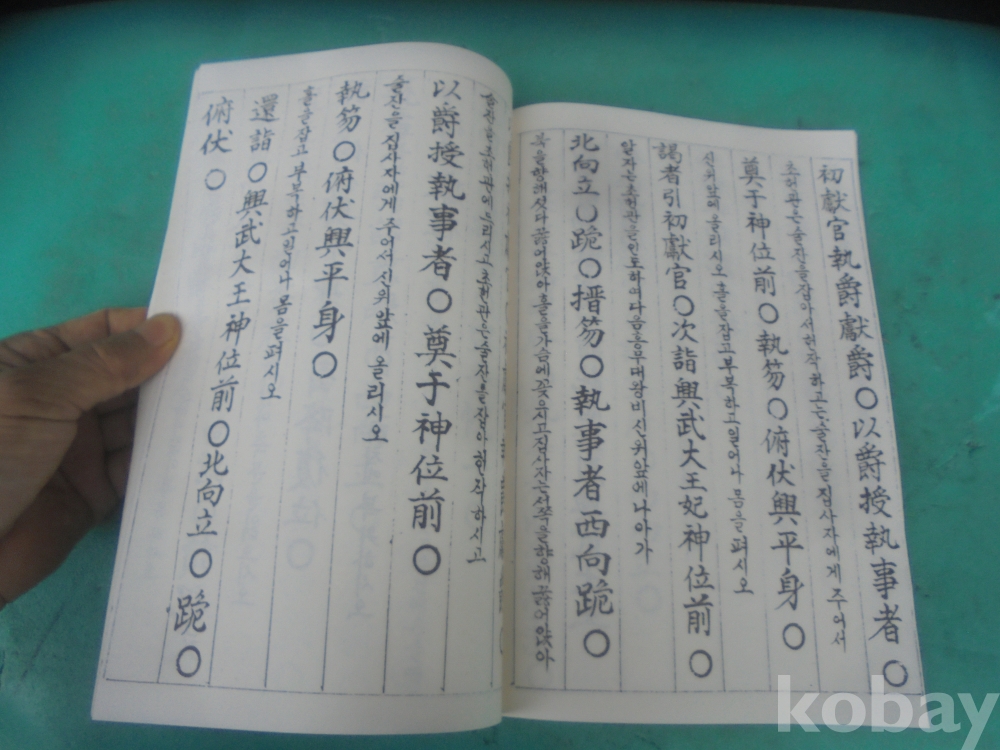 初獻官執爵獻爵○以爵授執事者○
초헌관은술잔을잡아서헌작하고는술잔을집사자에게주어서
奠于神位前○執笏○俯伏興平身○
신위앞에올리시오홀을잡고부복하고일어나몸을펴시오
謁者引初獻官○次詣興武大王妃神位前○
알자는초헌관을인도하여다음흥무대왕비신위앞에나아가
北向立○跪○搢笏○執事者西向跪○
북을향해섯다꿇어앉아홀을가슴에꽂으시고집사자는서쪽을향해꿇어앉아
술잔을초헌관에드리시고초헌관은술잔을잡아헌작하시고
以爵授執事者○奠于神位前○
술잔을집사자에게주어서신위앞에올리시오
執笏○俯伏興平身○
홀을잡고부복하고일어나몸을펴시오
還詣○興武大王神位前○北向立○跪○
俯伏○
kobay